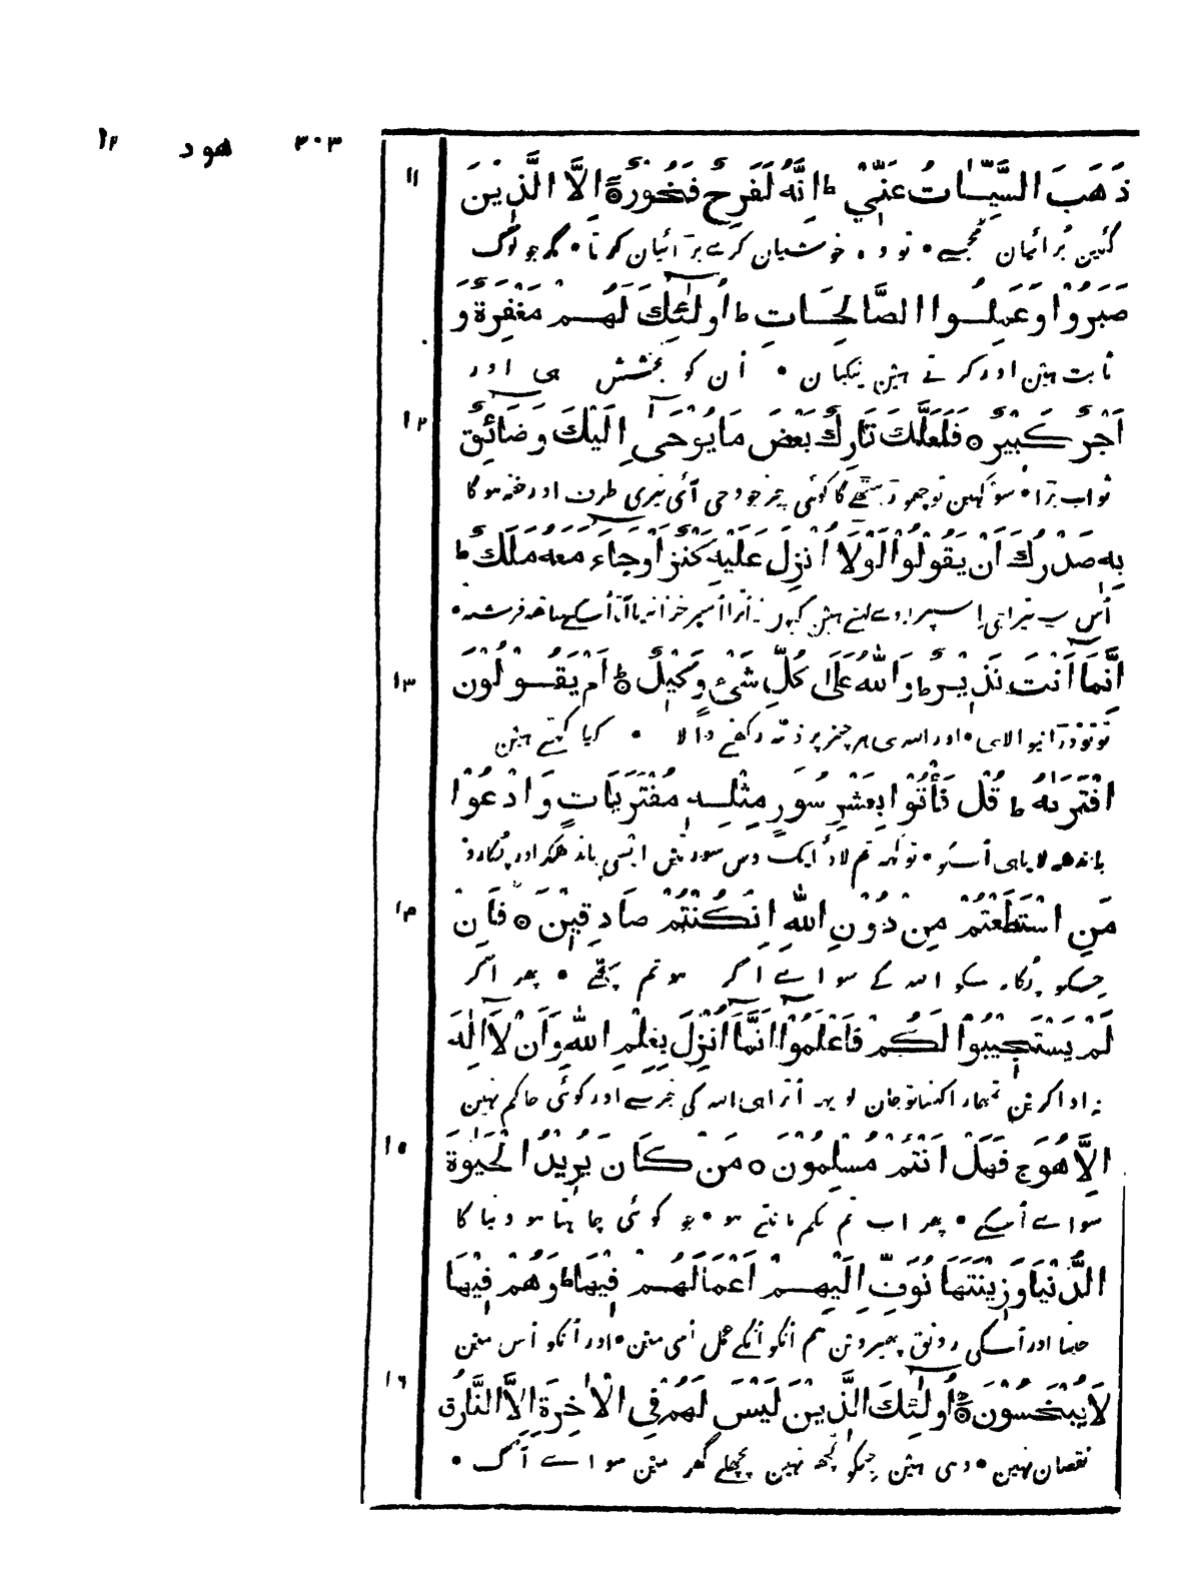 ١٢ هود ٣٠٣
١١
ذَهَبَ السَّيِّـاٰتُ عَنِّيْ ؕ اِنَّهٗ لَفَرِحٌ فَخُوْرٌ ۙ اِلَّا الَّذِيْنَ
گئین بُرائیان مجھسے • تو وہ خوشیان کرے بڑائیان کرتا • مگر جو لوگ
صَبَرُوْا وَعَمِلُـوا الصَّالِحَـاتِ ؕ اُولٰٓئِكَ لَهُـمْ مَغْفِرَةٌ وَ
ثابت ہین اور کرتے ہین نیکیان • اُن کو بخشش ہی اور
١٢
اَجْرٌ كَبِيْرٌ ۞ فَلَعَلَّكَ تَارِكٌ بَعْضَ مَا يُوْحٰىٓ اِلَيْكَ وَضَائِقٌ
ثواب بڑا • سو کہین تو چھوڑ بیٹھے گا کوئی چیز جو وحی آئی تیری طرف اور خفہ ہوگا
بِهٖ صَدْرُكَ اَنْ يَقُوْلُوْا لَوْلَا اُنْزِلَ عَلَيْهِ كَنْزٌ اَوْجَاءَ مَعَهٗ مَلَكٌ ؕ
اُس سے تیرا جی اِسپر اُترا اُسپر خزانہ یا آتا اُسکے ساتھ فرشتہ •
١٣
اِنَّمَآ اَنْتَ نَذِيْـرٌ ؕ وَاللّٰهُ عَلٰى كُلِّ شَيْءٍ وَكِيْلٌ ؕ اَمْ يَقُـوْلُوْنَ
تو تو ڈرانیوالا ہی • اور اللہ ہی ہر چیز پر ذمّہ رکھنے والا • کیا کہتے ہین
افْتَرٰىهُ ؕ قُلْ فَأْتُوْا بِعَشْرِ سُوَرٍ مِثْلِـهٖ مُفْتَرَيَاتٍ وَادْعُوْا
باندھ لایا ہی اُسکو • تو کہہ تم لاؤ ایک دس سورتین ایسی باندھکر اور پُکارو
١٤
مَنِ اسْتَطَعْتُمْ مِنْ دُوْنِ اللّٰهِ اِنْ كُنْتُمْ صَادِقِيْنَ ۞ فَاِنْ
جسکو پُکار سکو اللہ کے سواے اگر ہو تم سچّے • پھر اگر
لَمْ يَسْتَجِيْبُوْا لَكُـمْ فَاعْلَمُوْٓا اَنَّمَآ اُنْزِلَ بِعِلْمِ اللّٰهِ وَاَنْ لَآ اِلٰهَ
نہ ادا کرین تمہارا کہنا تو جان لو یہہ اُترا ہی اللہ کی خبر سے اور کوئی حاکم نہین
١٥
اِلَّا هُوَ ج فَهَلْ اَنْتُمْ مُسْلِمُوْنَ ۞ مَنْ كَانَ يُرِيْدُ الْحَيٰوةَ
سواے اُسکے • پھر اب تم حکم مانتے ہو • جو کوئی چاہتا ہو دنیا کا
الدُّنْيَا وَزِيْنَتَهَا نُوَفِّ اِلَيْهِـمْ اَعْمَالَهُـمْ فِيْهَا ؕ وَهُمْ فِيْهَا
جینا اور اُسکی رونق بھر دین ہم اُنکو اُنکے عمل اُسی مین • اور اُنکو اُس مین
١٦
لَايُبْخَسُوْنَ ۞ اُولٰٓئِكَ الَّذِيْنَ لَيْسَ لَهُمْ فِي الْاٰخِرَةِ اِلَّا النَّارُ ق
نقصان نہین • وہی ہین جنکو کچھ نہین پچھلے گھر مین سواے آگ •